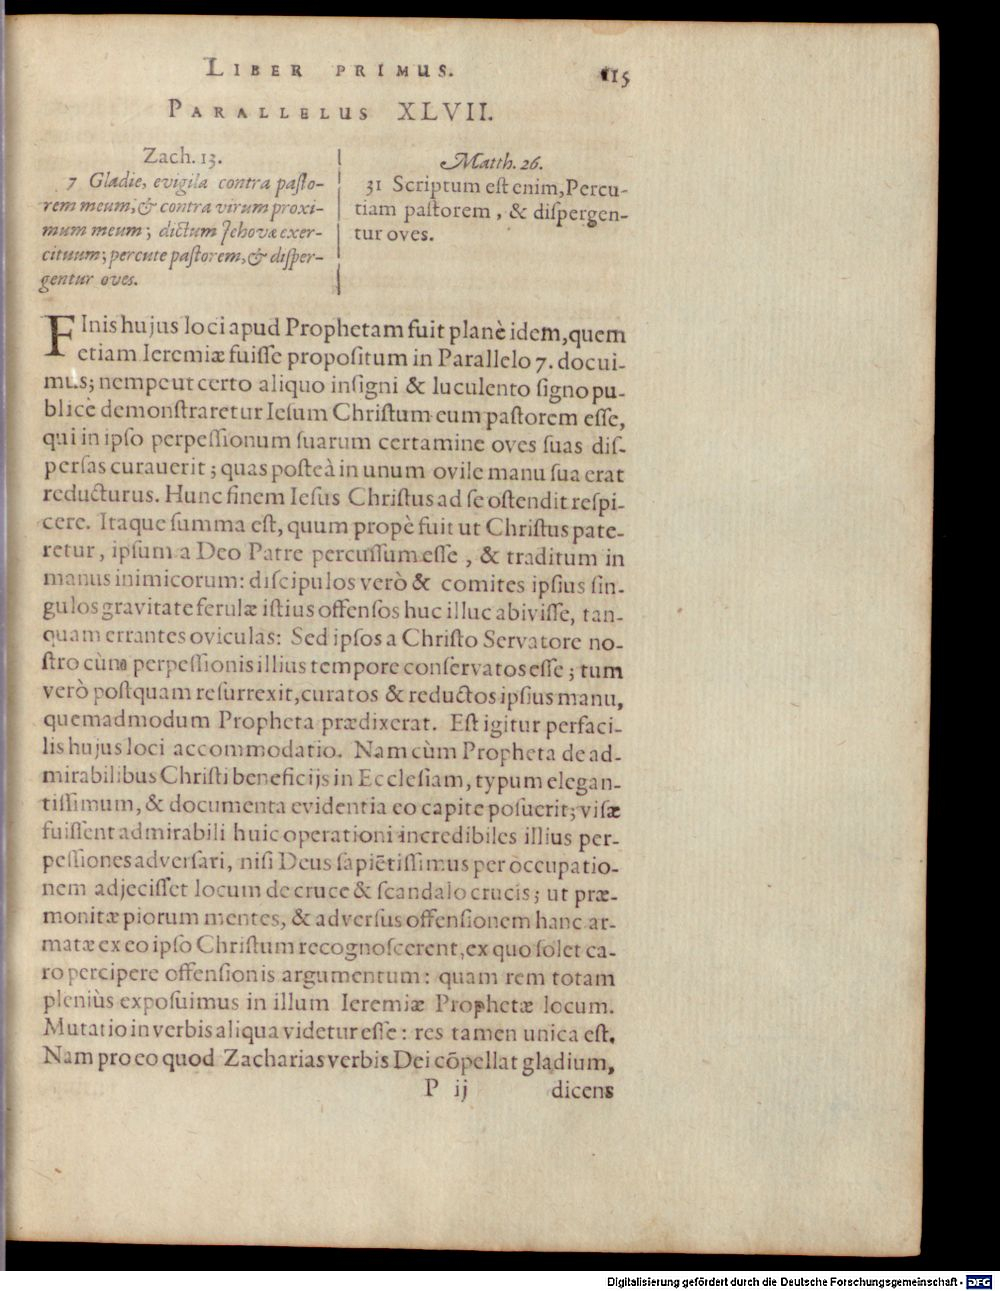 LIBER PRIMUS. 115
PARALLELUS XLVII.
Zach. 13.
7 Gladie, evigila contra pasto-
rem meum, & contra virum proxi-
mum meum; dictum Jehovæ exer-
cituum; percute pastorem, & disper-
gentur oves.
Matth. 26.
31 Scriptum est enim, Percu-
tiam pastorem, & dispergen-
tur oves.
FInis hujus loci apud Prophetam fuit planè idem, quem
etiam Ieremiæ fuisse propositum in Parallelo 7. docui-
mus; nempe ut certo aliquo insigni & luculento signo pu-
blicè demonstraretur Iesum Christum eum pastorem esse,
qui in ipso perpessionum suarum certamine oves suas dis-
persas curauerit; quas posteà in unum ovile manu sua erat
reducturus. Hunc finem Iesus Christus ad se ostendit respi-
cere. Itaque summa est, quum propè fuit ut Christus pate-
retur, ipsum a Deo Patre percussum esse, & traditum in
manus inimicorum: discipulos verò & comites ipsius sin-
gulos gravitate ferulæ istius offensos huc illuc abivisse, tan-
quam errantes oviculas: Sed ipsos a Christo Servatore no-
stro cùm perpessionis illius tempore conservatos esse; tum
verò postquam resurrexit, curatos & reductos ipsius manu,
quemadmodum Propheta prædixerat. Est igitur perfaci-
lis hujus loci accommodatio. Nam cùm Propheta de ad-
mirabilibus Christi beneficijs in Ecclesiam, typum elegan-
tissimum, & documenta evidentia eo capite posuerit; visæ
fuissent admirabili huic operationi incredibiles illius per-
pessiones adversari, nisi Deus sapiētissimus per occupatio-
nem adjecisset locum de cruce & scandalo crucis; ut præ-
monitæ piorum mentes, & adversus offensionem hanc ar-
matæ ex eo ipso Christum recognoscerent, ex quo solet ca-
ro percipere offensionis argumentum: quam rem totam
pleniùs exposuimus in illum Ieremiæ Prophetæ locum.
Mutatio in verbis aliqua videtur esse: res tamen unica est.
Nam pro eo quod Zacharias verbis Dei cōpellat gladium,
P ij dicens
Digitalisierung gefördert durch die Deutsche Forschungsgemeinschaft - DFG